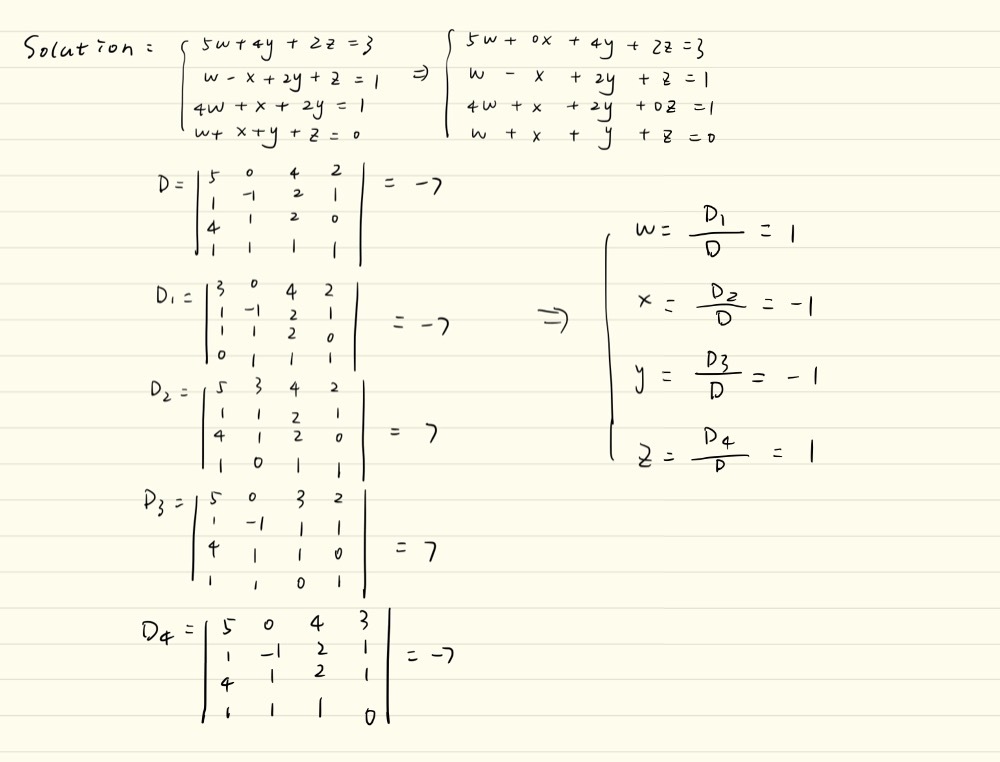 Solution: { 5w + 4y + 2z = 3 { 5w + 0x + 4y + 2z = 3
w - x + 2y + z = 1 ⇒ w - x + 2y + z = 1
4w + x + 2y = 1 4w + x + 2y + 0z = 1
w + x + y + z = 0 w + x + y + z = 0
D = | 5 0 4 2 | = -7
1 -1 2 1
4 1 2 0
1 1 1 1
D1 = | 3 0 4 2 | = -7
1 -1 2 1
1 1 2 0
0 1 1 1
D2 = | 5 3 4 2 | = 7
1 1 2 1
4 1 2 0
1 0 1 1
D3 = | 5 0 3 2 | = 7
1 -1 1 1
4 1 1 0
1 1 0 1
D4 = | 5 0 4 3 | = -7
1 -1 2 1
4 1 2 1
1 1 1 0
⇒ { w = D1/D = 1
x = D2/D = -1
y = D3/D = -1
z = D4/D = 1